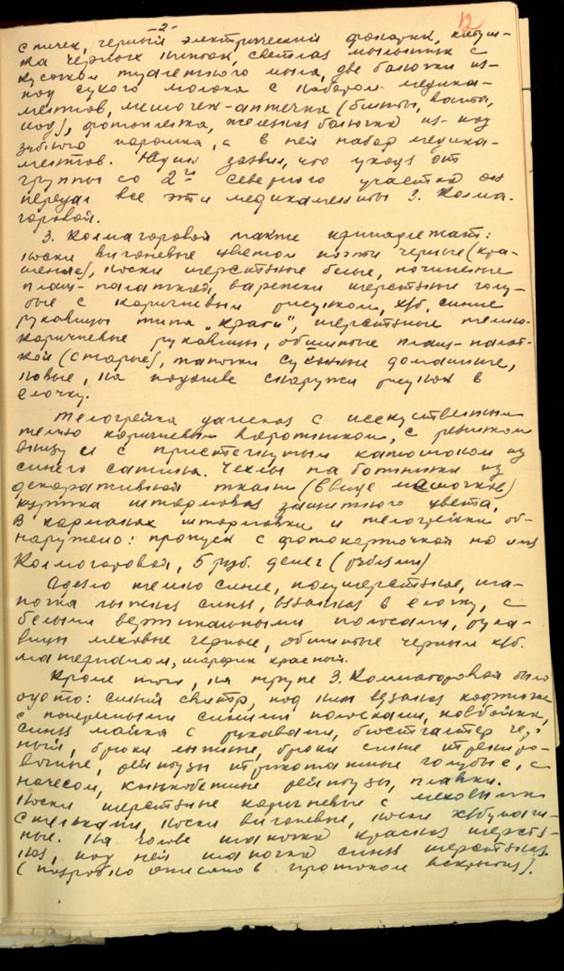 -2-
12
спичек, черный электрический фонарик, катуш-
ка черных ниток, светлая мыльница с
куском туалетного мыла, две баночки из-
под сухого молока с набором медика-
ментов, мешочек-аптечка (бинты, вата,
йод), фотопленка, железная баночка из-под
зубного порошка, а в ней набор медика-
ментов. Юдин заявил, что уходя от
группы со 2го северного участка он
передал все эти медикаменты З. Колмо-
горовой.
З. Колмогоровой также принадлежат:
носки вигоневые цветом почти черные (кра-
шеные), носки шерстяные белые, починенные
плащ-палаткой, варежки шерстяные голу-
бые с коричневым рисунком, х/б. синие
рукавицы типа "краги", шерстяные темно-
коричневые рукавицы, обшитые плащ-палат-
кой (старые), тапочки суконные домашние,
новые, на подошве снаружи рисунок в
елочку.
Телогрейка дамская с искусственным
темно коричневым воротником, с ремнем
внизу и с пристегнутым капюшоном из
синего сатина. Чехлы на ботинки из
декоративной ткани (в виде мешочков)
куртка штормовая защитного цвета.
В карманах штормовки и телогрейки об-
наружено: пропуск с фотокарточкой на имя
Колмогоровой, 5 руб. денег (рублями)
Одеяло темно синее, полушерстяное, ша-
почка лыжная синяя, вязанная в елочку, с
белыми вертикальными полосами, рука-
вицы меховые черные, обшитые черным х/б.
материалом, шарфик красный.
Кроме того, на трупе З. Колмогоровой было
одето: синий свитр, под ним вязаная кофточка
с поперечными синими полосками, ковбойка,
синяя майка с рукавами, бюстгалтер чер-
ный, брюки лыжные, брюки синие трениро-
вочные, рейтузы трикотажные голубые, с
начесом, рейтузы, плавки.
Носки шерстяные коричневые с меховыми
стельками, носки вигоневые, носки х/бумаж-
ные. На голове шапочка красная шерстя-
ная, под ней шапочка синяя шерстяная.
(подробно описано в протоколе вскрытия).